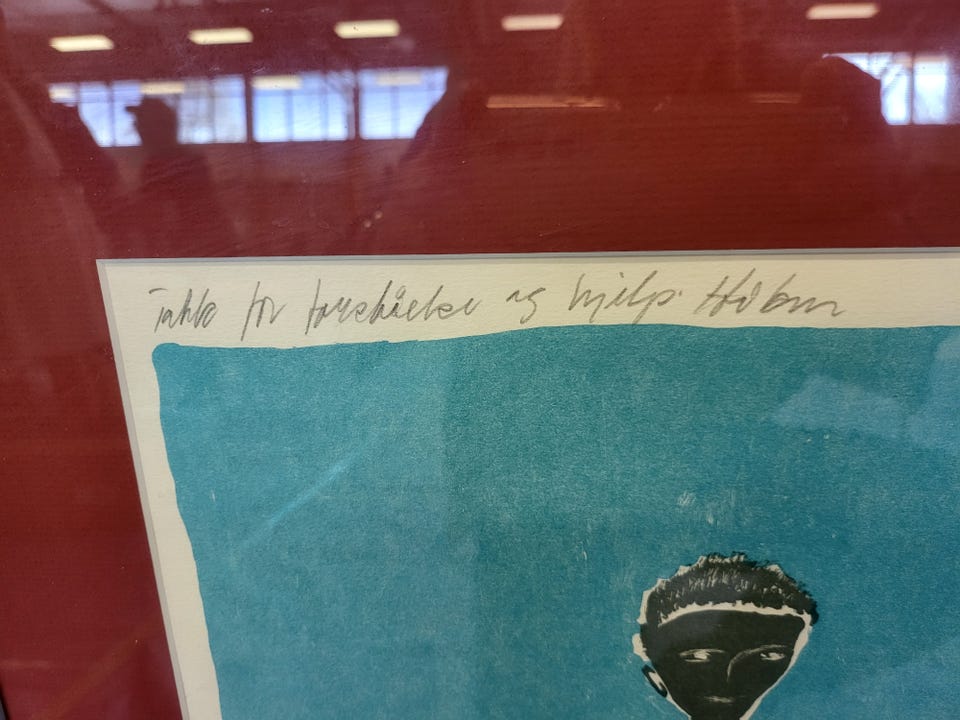 Takk for forståelse og hjelp. Håkon